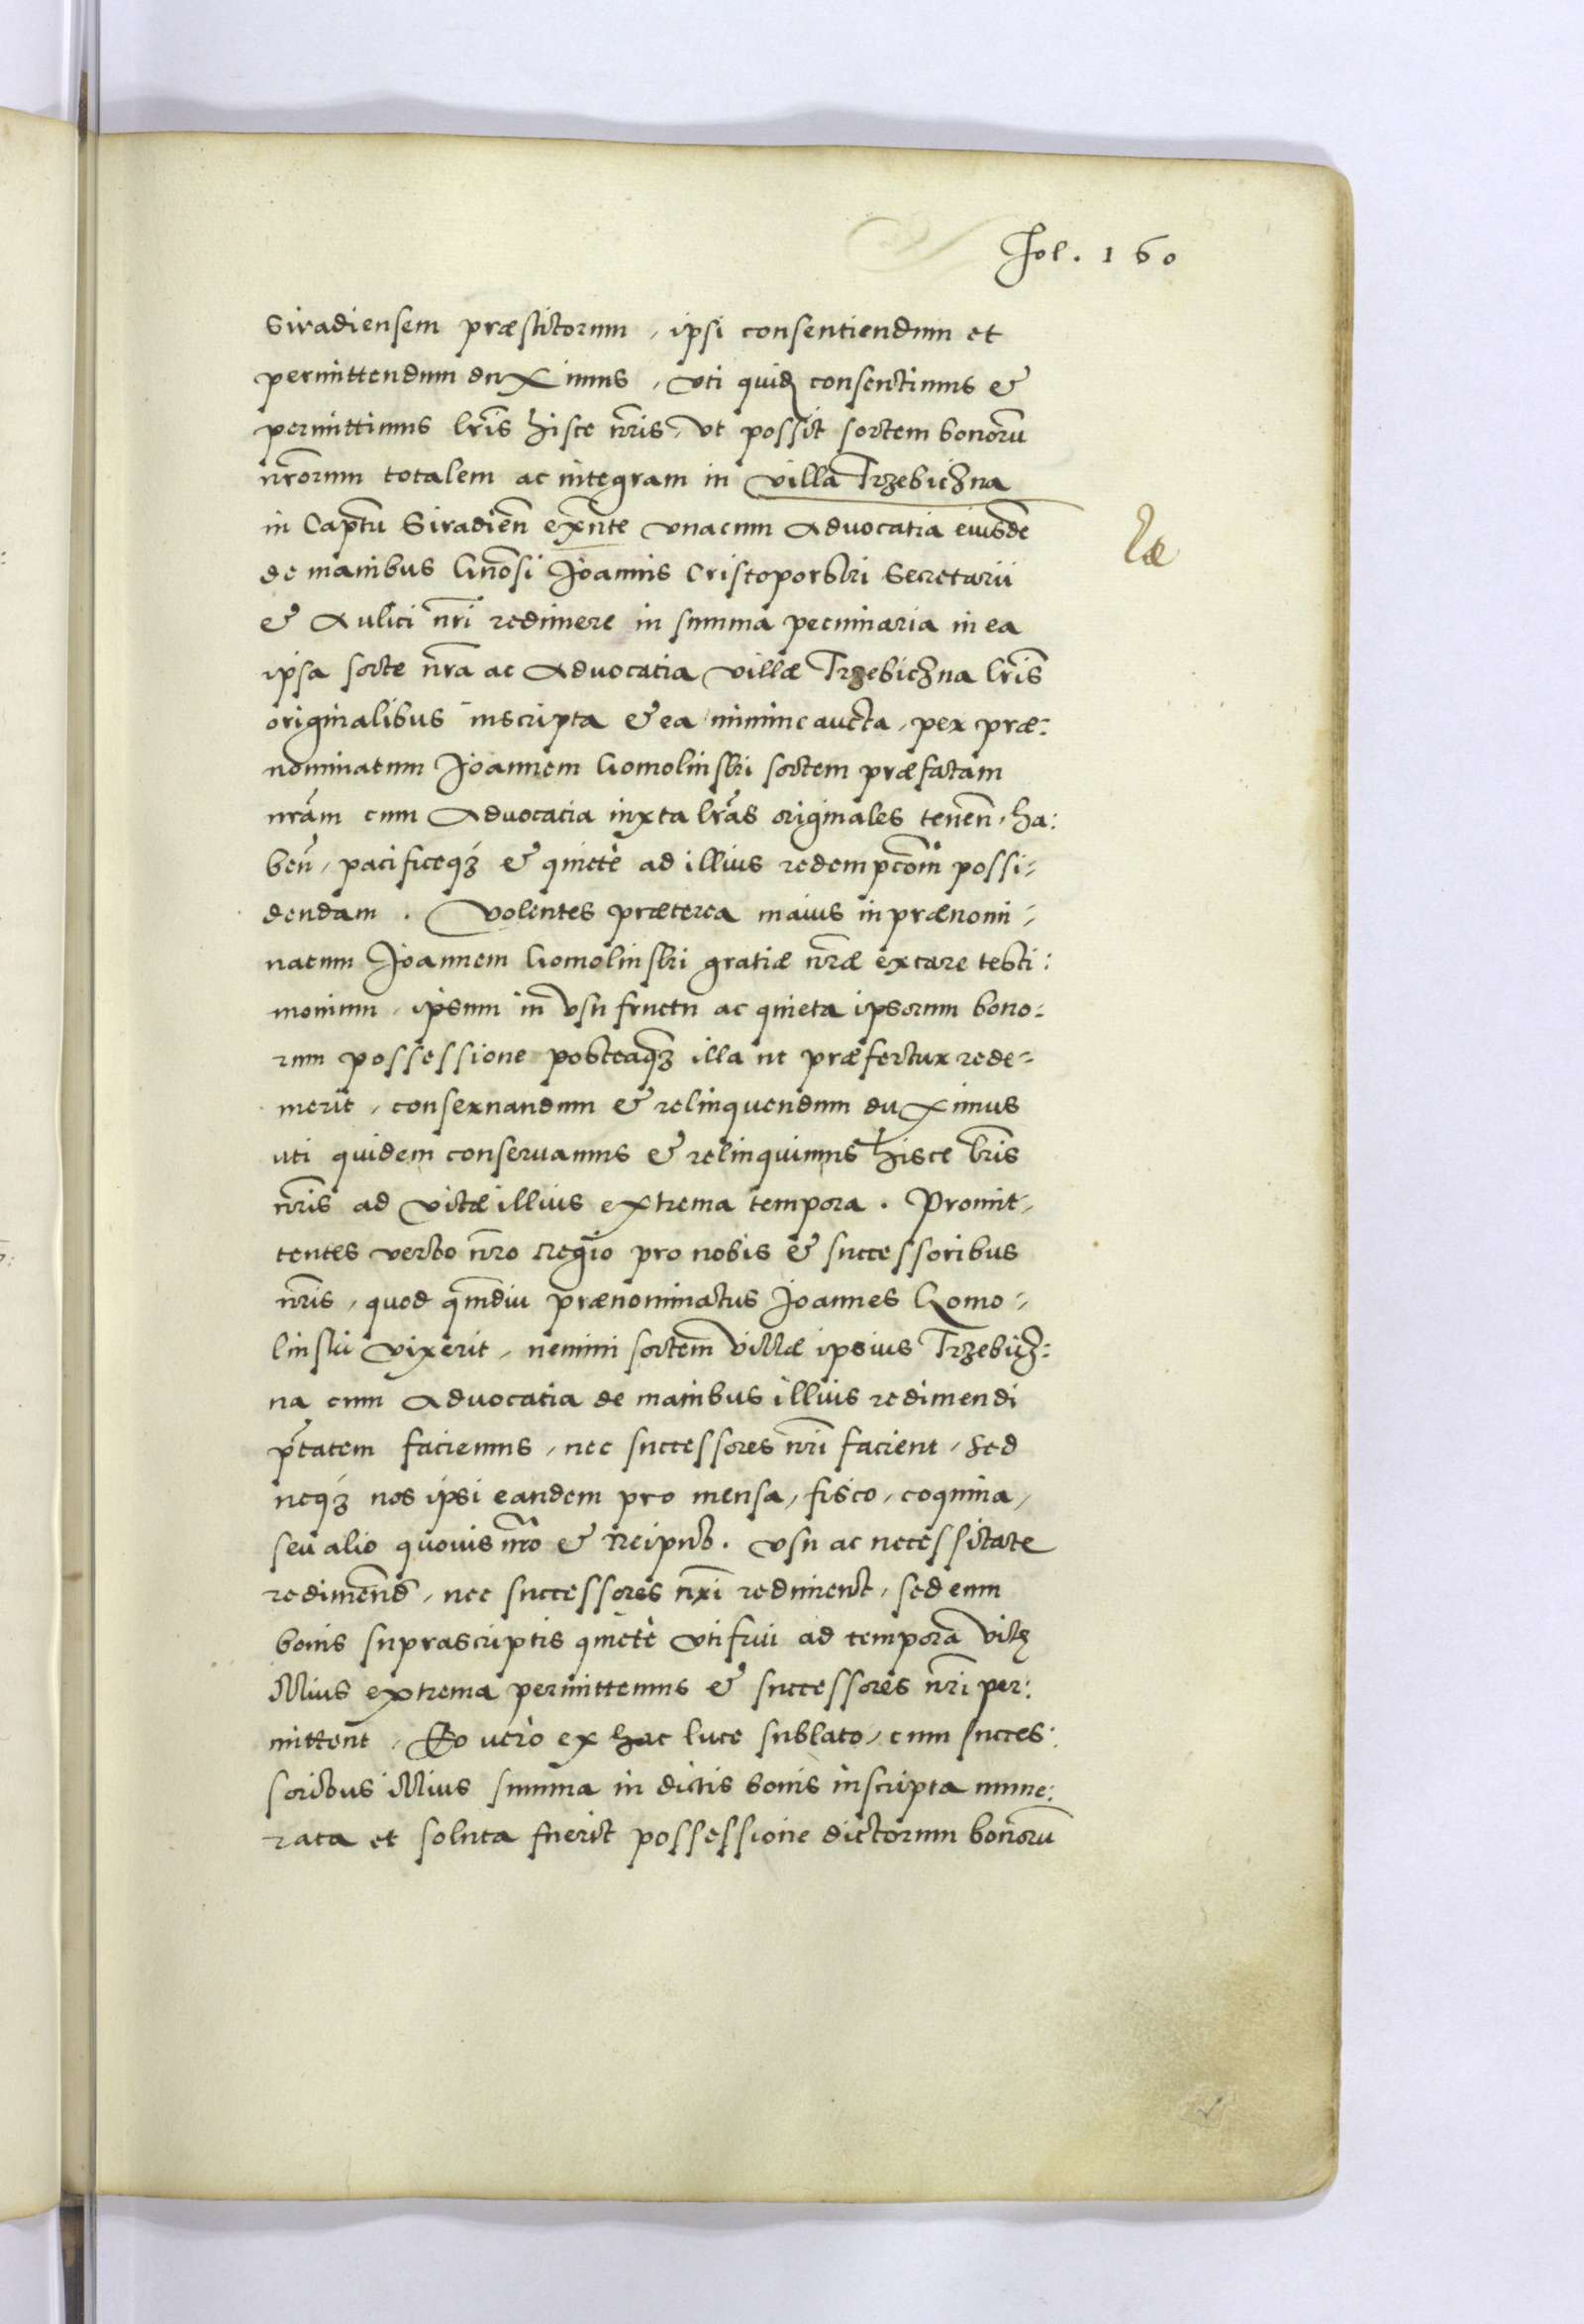 Fol. 160
Siradiensem præstitorum, ipsi consentiendum et
permittendum duximus, vti quidẽ consentimus &
permittimus lrĩs hisce nrĩs, vt possit sortem bonorũ
nrõrum totalem ac integram in villa Trzebiczna
in Captũ Siradieñ exñte vnacum Advocatia eiusdẽ
de manibus Gnõsi Joannis Cristoporski Secretarii
& Aulici nrĩ redimere in summa pecuniaria in ea
ipsa sorte nrã ac Advocatia villæ Trzebiczna lrĩs
originalibus inscripta & ea minime aucta, per præ:
nominatum Joannem Gomolinski sortem præfatam
nrãm cum Advocatia iuxta lrãs originales teneñ, ha:
beñ, pacificeqꝫ & quietè ad illius redempcõm possi-
dendam. Volentes præterea maius in prænomi-
natum Joannem Gomolinski gratiæ nrãe extare testi:
monium, ipsum in vsu fructu ac quieta ipsorum bono:
rum possessione posteaqꝫ illa ut præfertur rede-
merit, conseruandum & relinquendum duximus
uti quidem conseruamus & relinquimus hisce lrĩs
nrĩs ad vitæ illius extrema tempora. Promit-
tentes verbo nrõ Regio pro nobis & successoribus
nrĩs, quod qm̃diu prænominatus Joannes Gomo-
linski vixerit, nemini sortem villæ ipsius Trzebicz:
na cum Advocatia de manibus illius redimendi
ptãtem faciemus, nec successores nrĩ facient, sed
neqꝫ nos ipsi eandem pro mensa, fisco, coquina,
seu alio quouis nrõ & Reipub. vsu ac necessitate
redimend̃, nec successores nrĩ rediment, sed eum
bonis suprascriptis quietè vti frui ad tempora vitę
illius extrema permittemus & successores nrĩ per:
mittent. Eo uerò ex hac luce sublato, cum succes:
soribus illius summa in dictis bonis inscripta nume:
rata et soluta fuerit possessione dictorum bonorũ